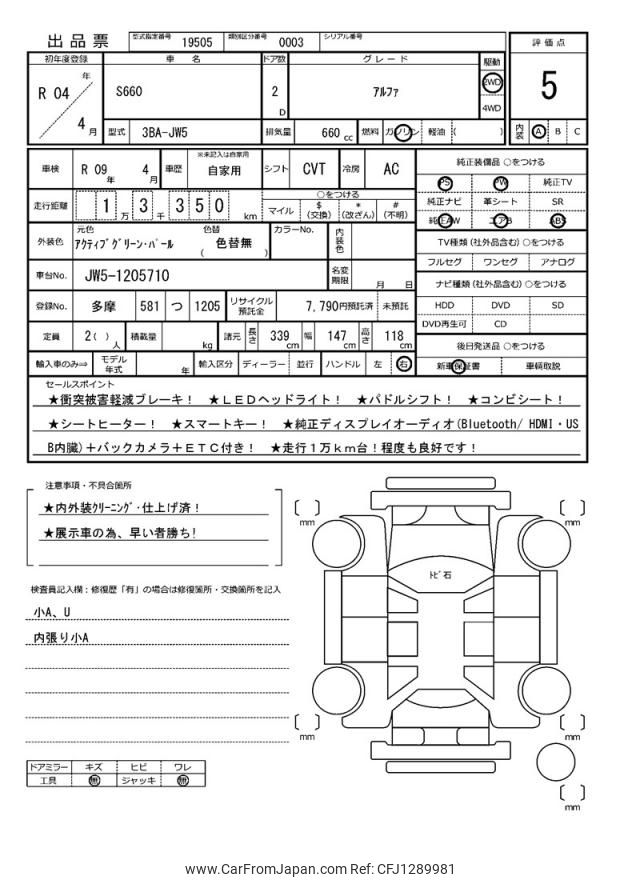 出品票
型式指定番号 19505 類別区分番号 0003 シリアル番号
初年度登録 車名 ドア数 グレード 駆動 評価点
R 04 年 4 月
S660 2 D アルファ 2WD 4WD 5
型式 3BA-JW5 排気量 660 cc 燃料 ガソリン 軽油 ( ) 内装 A B C
車検 R 09 年 4 月 車歴 ※未記入は自家用 自家用 シフト CVT 冷房 AC
走行距離 1 万 3 千 350 km ○をつける マイル $ (交換) * (改ざん) # (不明)
外装色 元色 アクティブグリーン・パール 色替 ( 色替無 ) カラーNo. 内装色
車台No. JW5-1205710 名変期限 月 日
登録No. 多摩 581 つ 1205 リサイクル預託金 7,790円預託済 未預託
定員 2( ) 人 積載量 kg 諸元 長さ 339 cm 幅 147 cm 高さ 118 cm
輸入車のみ⇒ モデル年式 年 輸入区分 ディーラー 並行 ハンドル 左 右
純正装備品 ○をつける
PS PW 純正TV
純正ナビ 革シート SR
純正AW エアB ABS
TV種類 (社外品含む) ○をつける
フルセグ ワンセグ アナログ
ナビ種類 (社外品含む) ○をつける
HDD DVD SD
DVD再生可 CD
後日発送品 ○をつける
新車保証書 車輌取説
セールスポイント
★衝突被害軽減ブレーキ！ ★ＬＥＤヘッドライト！ ★パドルシフト！ ★コンビシート！
★シートヒーター！ ★スマートキー！ ★純正ディスプレイオーディオ(Bluetooth/ HDMI・US
B内臓)＋バックカメラ＋ＥＴＣ付き！ ★走行１万ｋｍ台！程度も良好です！
注意事項・不具合箇所
★内外装クリーニング・仕上げ済！
★展示車の為、早い者勝ち!
検査員記入欄：修復歴「有」の場合は修復箇所・交換箇所を記入
小A、U
内張り小A
ドアミラー キズ ヒビ ワレ
工具 無 ジャッキ 無
mm
mm
トビ石
mm
mm
mm
www.CarFromJapan.com Ref: CFJ1289981